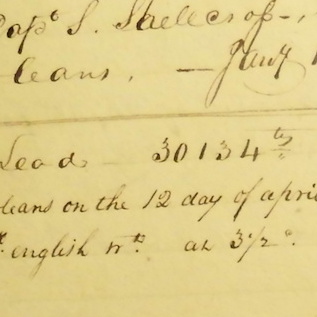 Capt S. Shallcross -
leans, - Jany 1
Lead 30134 lbs
leans on the 12 day of apri
english wt at 3 1/2 c.